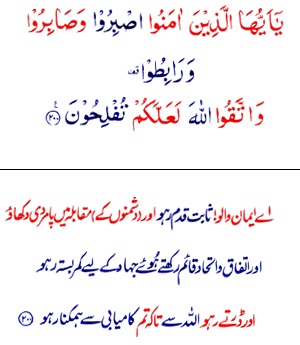 يٰٓاَيُّهَا الَّذِيْنَ اٰمَنُوا اصْبِرُوْا وَصَابِرُوْا
وَرَابِطُوْا قف
وَاتَّقُوا اللّٰهَ لَعَلَّكُمْ تُفْلِحُوْنَ ﴿۲۰۰﴾
اے ایمان والو! ثابت قدم رہو اور (دشمنوں کے) مقابلہ میں پامردی دکھاؤ
اور اتفاق و اتحاد قائم رکھتے ہوئے جہاد کے لیے کمر بستہ رہو
اور ڈرتے رہو اللہ سے تاکہ تم کامیابی سے ہمکنار رہو ﴿۲۰۰﴾